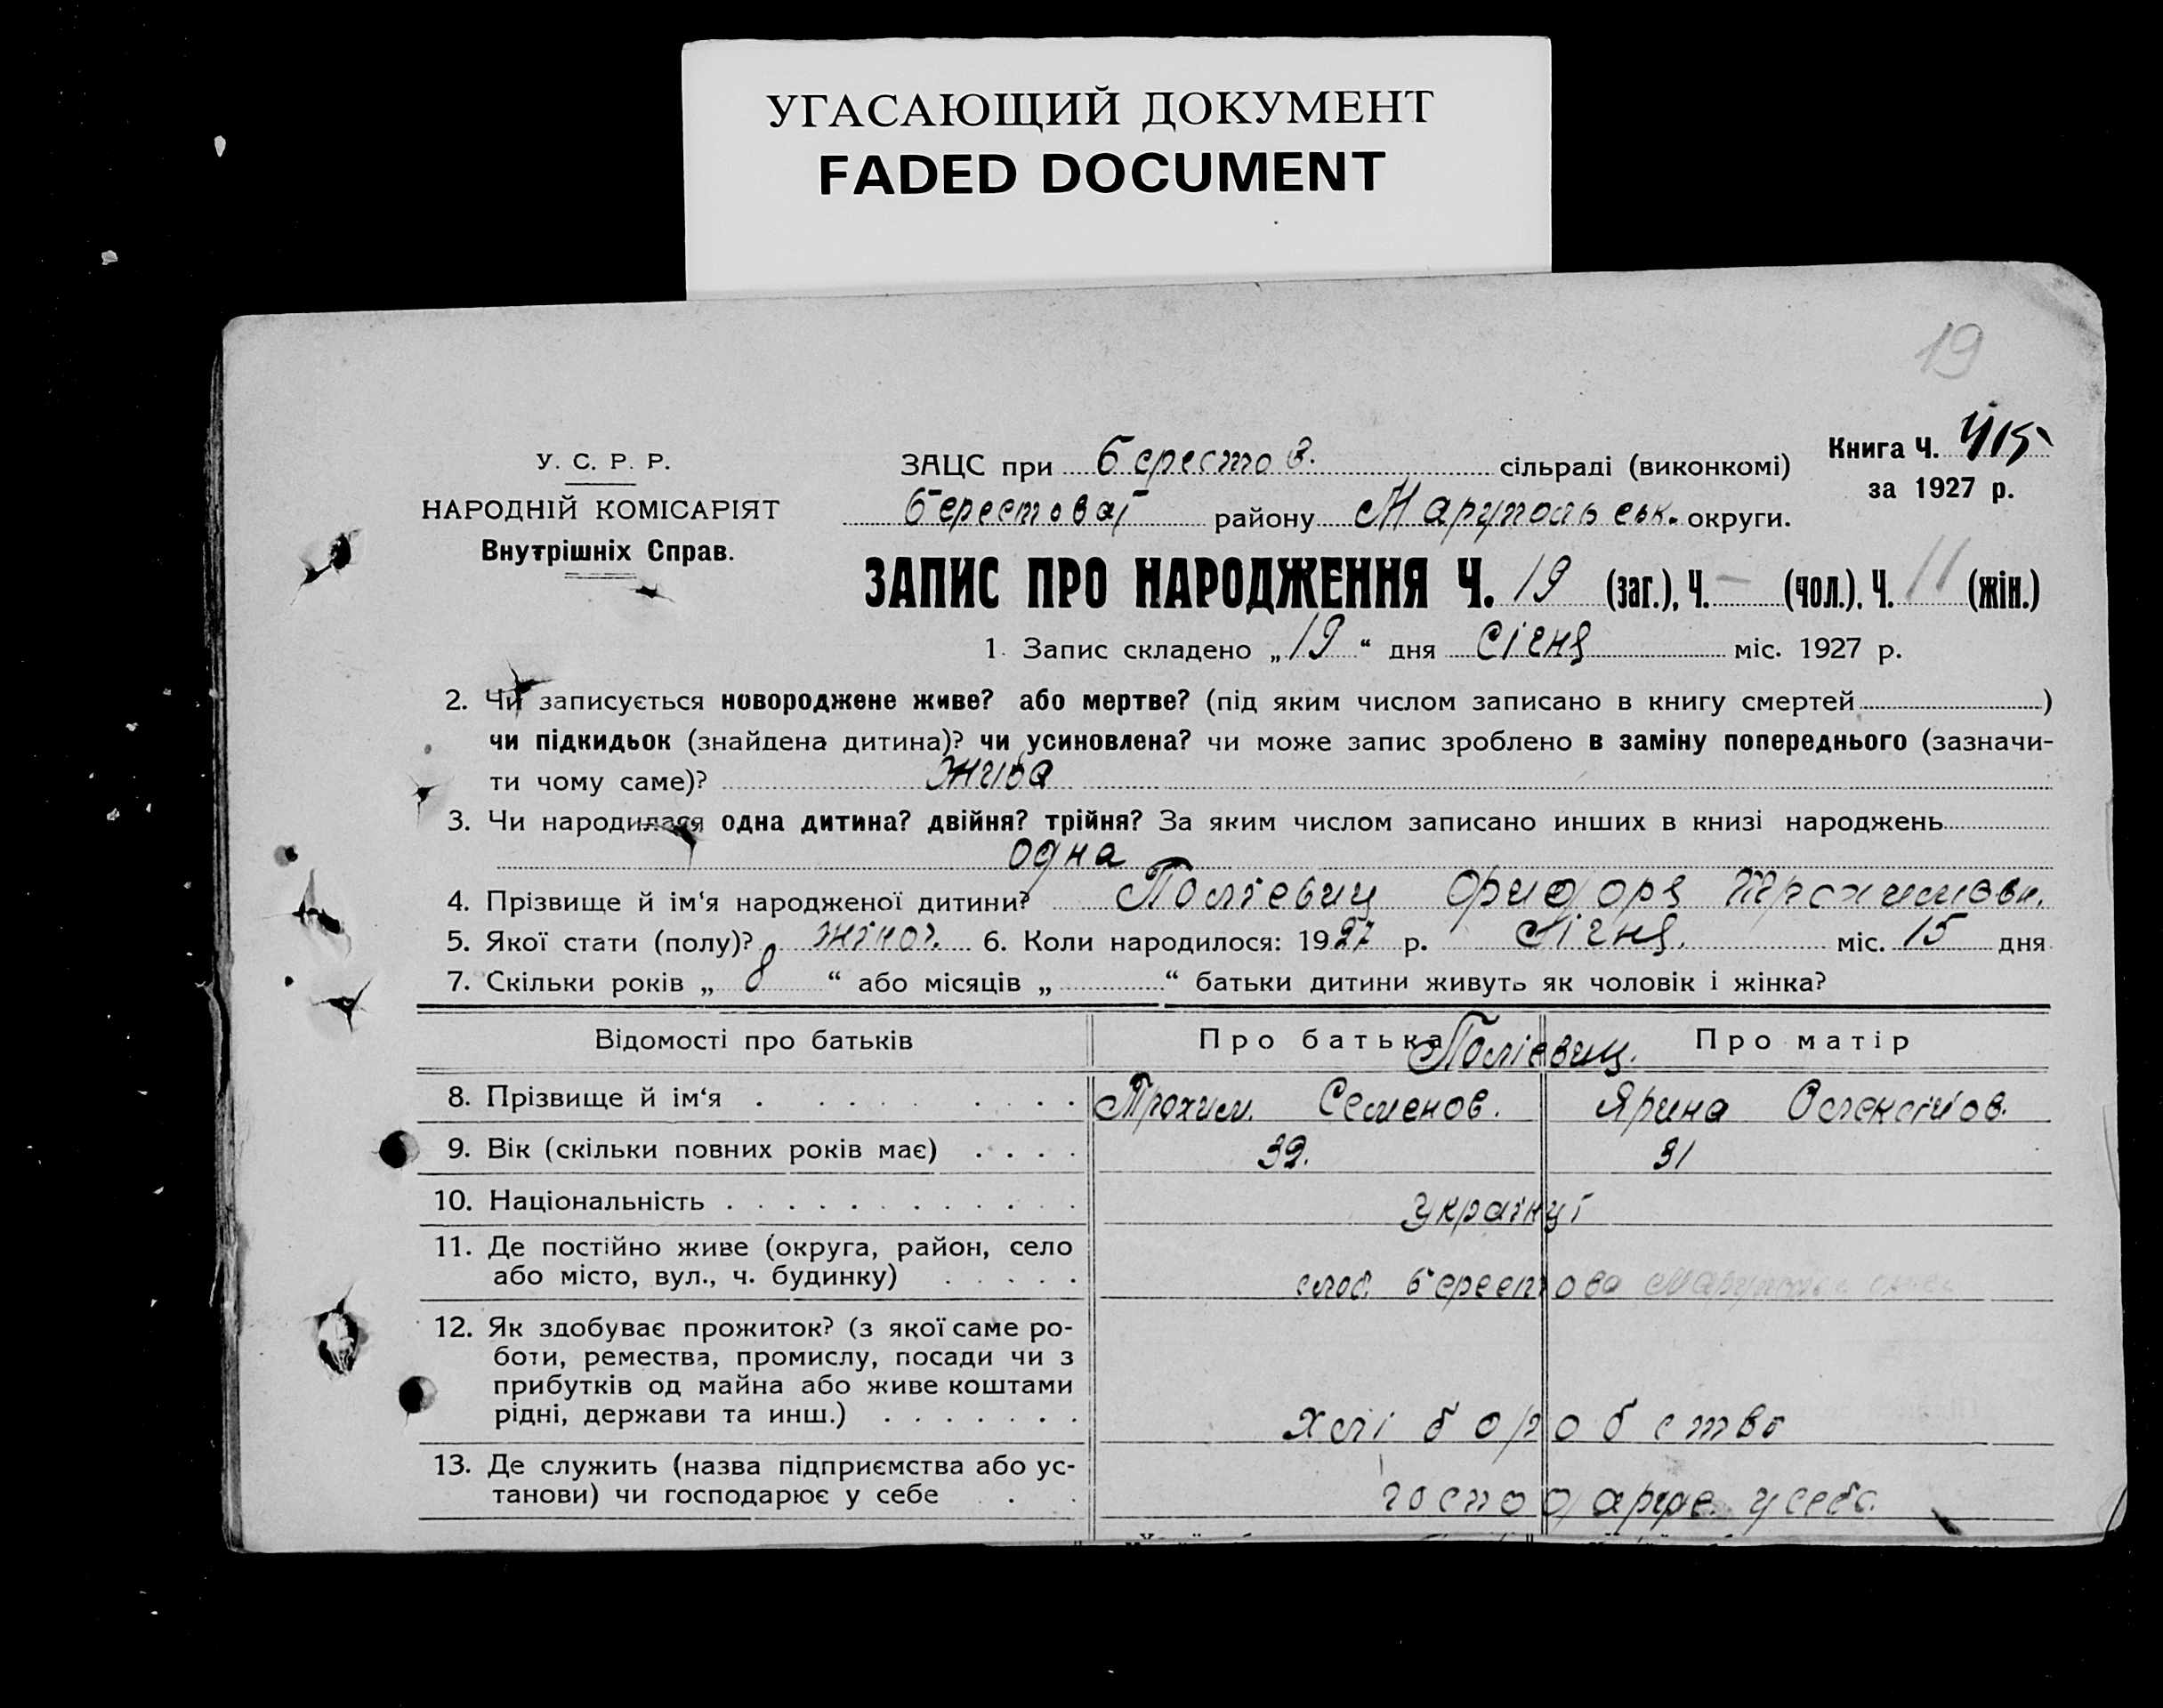 УГАСАЮЩИЙ ДОКУМЕНТ
FADED DOCUMENT
19
У. С. Р. Р.
НАРОДНІЙ КОМІСАРІЯТ
Внутрішніх Справ.
ЗАЦС при Берестов. сільраді (виконкомі)
Берестоваї району Марупольськ. округи.
Книга Ч. 415
за 1927 р.
ЗАПИС ПРО НАРОДЖЕННЯ Ч. 19 (заг.), Ч. - (чол.), Ч. 11 (жін.)
1. Запис складено „19“ дня Січня міс. 1927 р.
2. Чи записується новороджене живе? або мертве? (під яким числом записано в книгу смертей )
чи підкидьок (знайдена дитина)? чи усиновлена? чи може запис зроблено в заміну попереднього (зазначи-
ти чому саме)? жива
3. Чи народилася одна дитина? двійня? трійня? За яким числом записано инших в книзі народжень
одна
4. Прізвище й ім‘я народженої дитини? Полієвиц Трохимовн.
5. Якої статі (полу)? жіноч. 6. Коли народилося: 1927 р. Січня. міс. 15 дня
7. Скільки років „ 8 “ або місяців „ “ батьки дитини живуть як чоловік і жінка?
Відомості про батьків Про батька Про матір
Полієвиц.
8. Прізвище й ім‘я . . . . . . . . . Трохим. Семенов. Ярина Олексійов.
9. Вік (скільки повних років має) . . . . 32. 31
10. Національність . . . . . . . . . . . . . Українці
11. Де постійно живе (округа, район, село
або місто, вул., ч. будинку) . . . . . слоб. Берестова
12. Як здобуває прожиток? (з якої саме ро-
боти, ремества, промислу, посади чи з
прибутків од майна або живе коштами
рідні, держави та инш.) . . . . . . . хліборобство
13. Де служить (назва підприємства або ус-
танови) чи господарює у себе . . господарює у себе